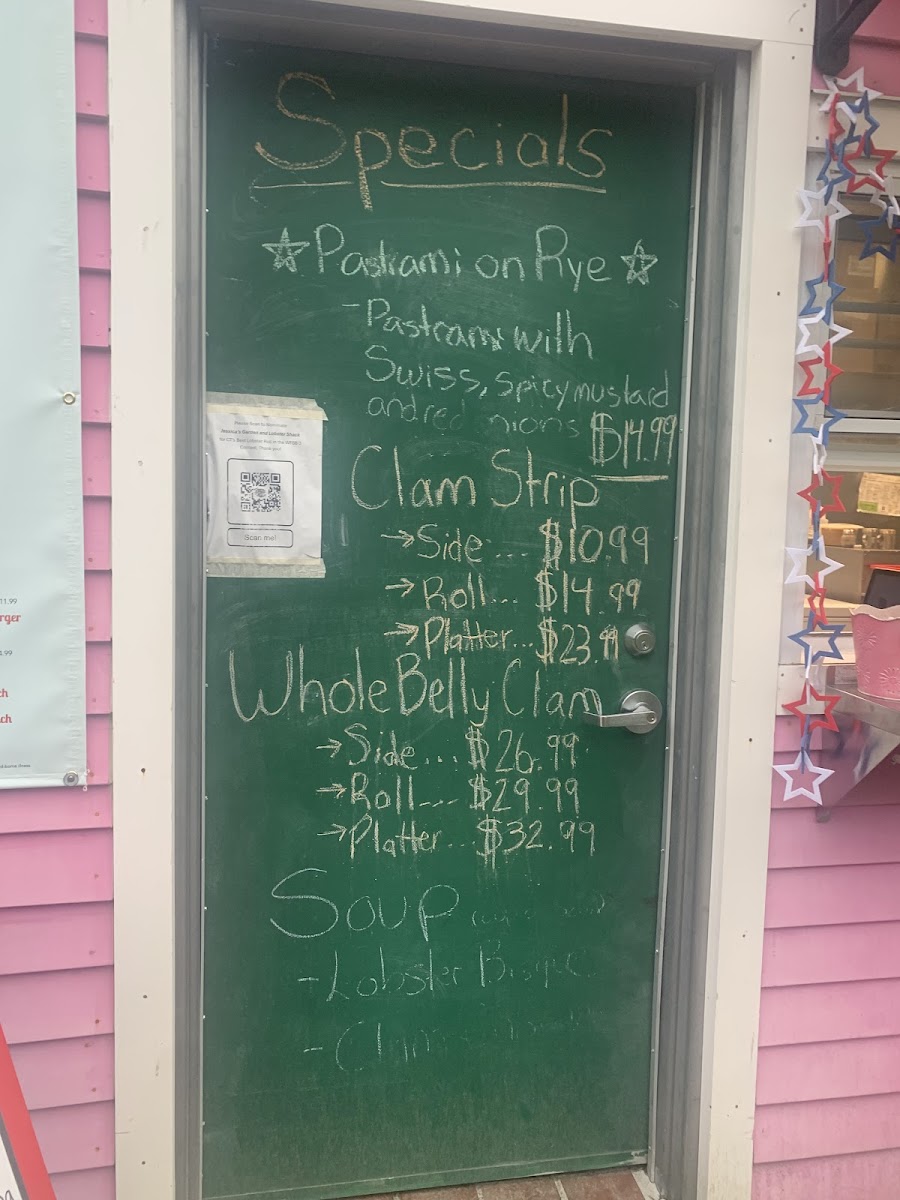 Specials
☆Pastrami on Rye☆
-Pastrami with
Swiss, spicy mustard
and red onions $14.99
Clam Strip
→Side... $10.99
→Roll... $14.99
→Platter... $23.99
Whole Belly Clam
→Side... $26.99
→Roll... $29.99
→Platter... $32.99
Soup
-Lobster Bisque
Jessica's Garden and Lobster Shack
Scan me!
11.99